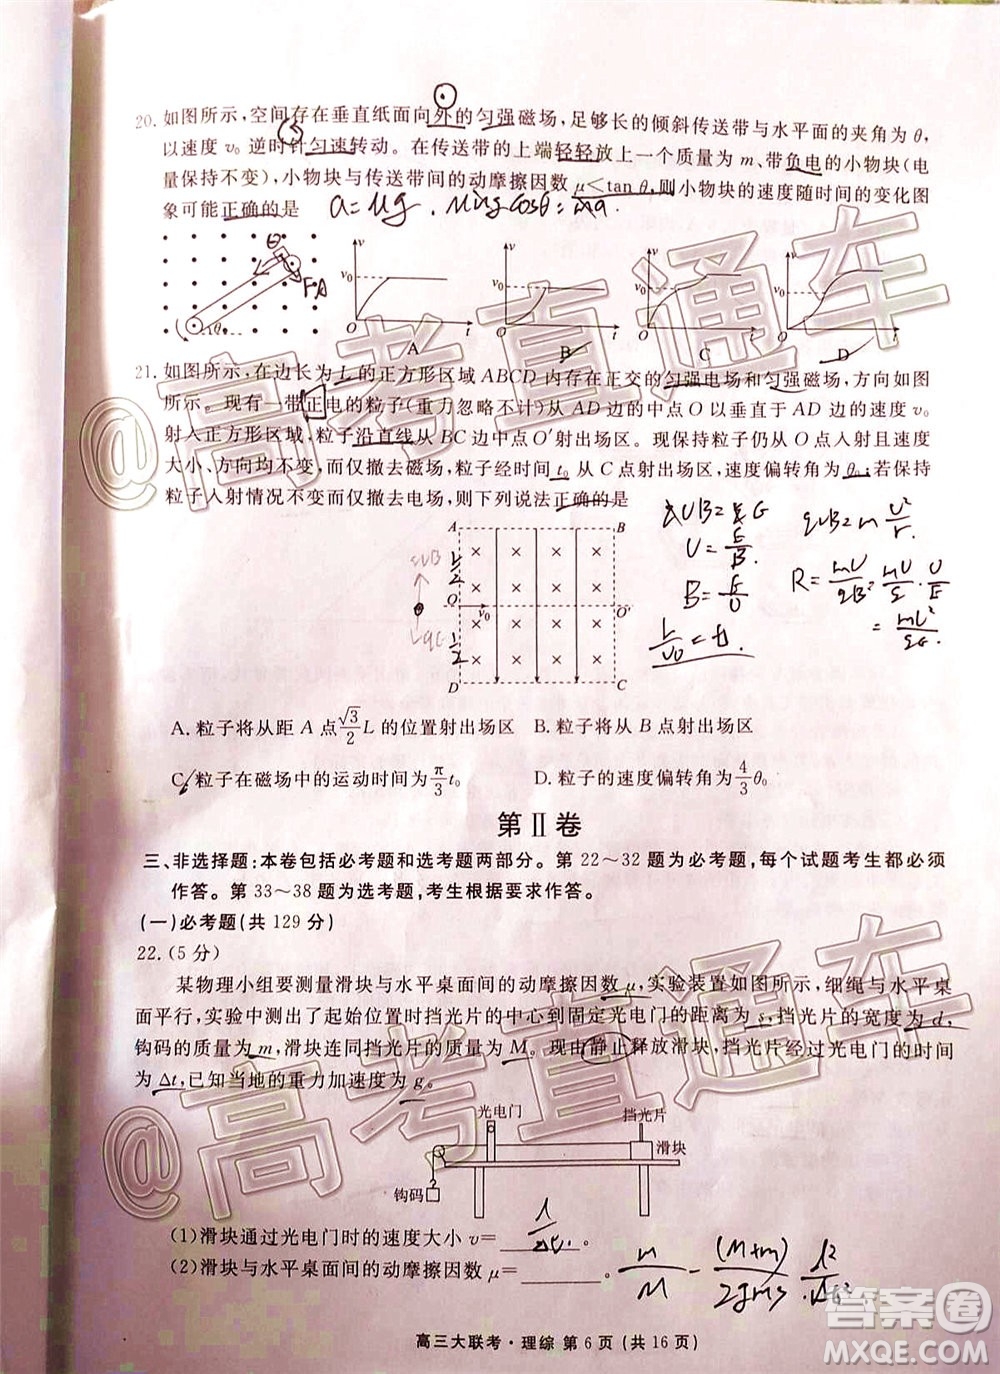 20. 如图所示,空间存在垂直纸面向外的匀强磁场,足够长的倾斜传送带与水平面的夹角为θ,
以速度 v₀ 逆时针匀速转动。在传送带的上端轻轻放上一个质量为 m、带负电的小物块(电
量保持不变),小物块与传送带间的动摩擦因数 μ<tan θ,则小物块的速度随时间的变化图
象可能正确的是
a=μg. μmgcosθ=ma.
v v₀ O t A
v v₀ O t B
v v₀ O t C
v v₀ O t D
θ
21. 如图所示,在边长为 L 的正方形区域 ABCD 内存在正交的匀强电场和匀强磁场,方向如图
所示。现有一带正电的粒子(重力忽略不计)从 AD 边的中点 O 以垂直于 AD 边的速度 v₀
射入正方形区域,粒子沿直线从 BC 边中点 O′射出场区。现保持粒子仍从 O 点射入的速度
大小、方向均不变,若仅撤去磁场,粒子经时间 t₀ 从 C 点射出场区,速度偏转角为 θ₀;若保持
粒子入射情况不变而仅撤去电场,则下列说法正确的是
A B
O v₀ O′
D C
qvB
L/2
L/2
U=E/B.
B=E/U
L/v₀=t₀
qvB=m U²/r.
R=mU/qB=mU/q·U/E
=mU²/qE
A. 粒子将从距 A 点√3/2 L 的位置射出场区 B. 粒子将从 B 点射出场区
C. 粒子在磁场中的运动时间为 π/3 t₀ D. 粒子的速度偏转角为 4/3 θ₀
第Ⅱ卷
三、非选择题:本卷包括必考题和选考题两部分。第 22～32 题为必考题,每个试题考生都必须
作答。第 33～38 题为选考题,考生根据要求作答。
(一)必考题(共 129 分)
22. (5 分)
某物理小组要测量滑块与水平桌面间的动摩擦因数 μ,实验装置如图所示,细绳与水平桌
面平行,实验中测出了起始位置时挡光片的中心到固定光电门的距离为 s,挡光片的宽度为 d,
钩码的质量为 m,滑块连同挡光片的质量为 M。现由静止释放滑块,挡光片经过光电门的时间
为 Δt,已知当地的重力加速度为 g。
光电门 挡光片
滑块
钩码
(1)滑块通过光电门时的速度大小 v=d/Δt。
(2)滑块与水平桌面间的动摩擦因数 μ=________。 m/M-(M+m)/2gMs·d²/Δt²
高三大联考·理综 第 6 页 (共 16 页)
@高考直通车
@高考直通车
答案圈
MXQE.COM